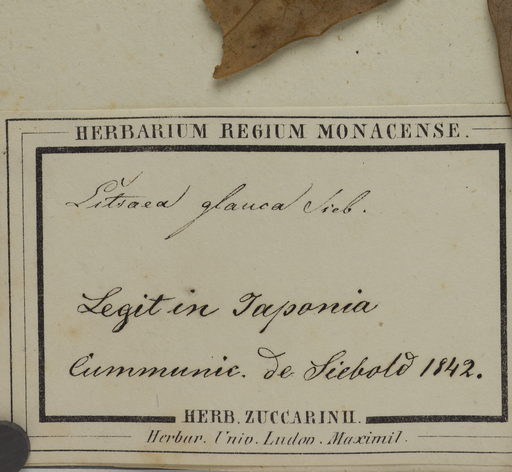 HERBARIUM REGIUM MONACENSE.
Litsaea glauca Sieb.
Legit in Japonia
Cummunic. de Siebold 1842.
HERB. ZUCCARINII.
Herbar. Univ. Ludov. Maximil.